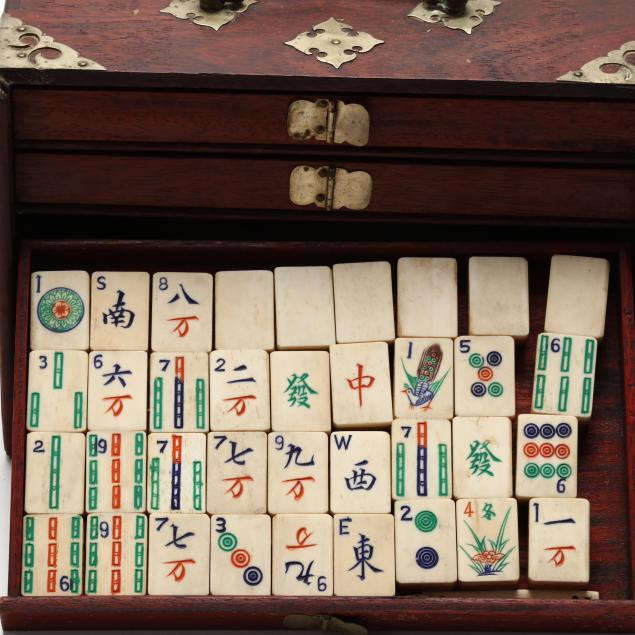 1 S 南 8 八万
3 6 六万 7 2 二万 發 中 1 5 6
2 9 7 7 七万 9 九万 W 西 7 發 9
9 9 7 七万 3 9 九万 E 東 2 4 冬 1 一万